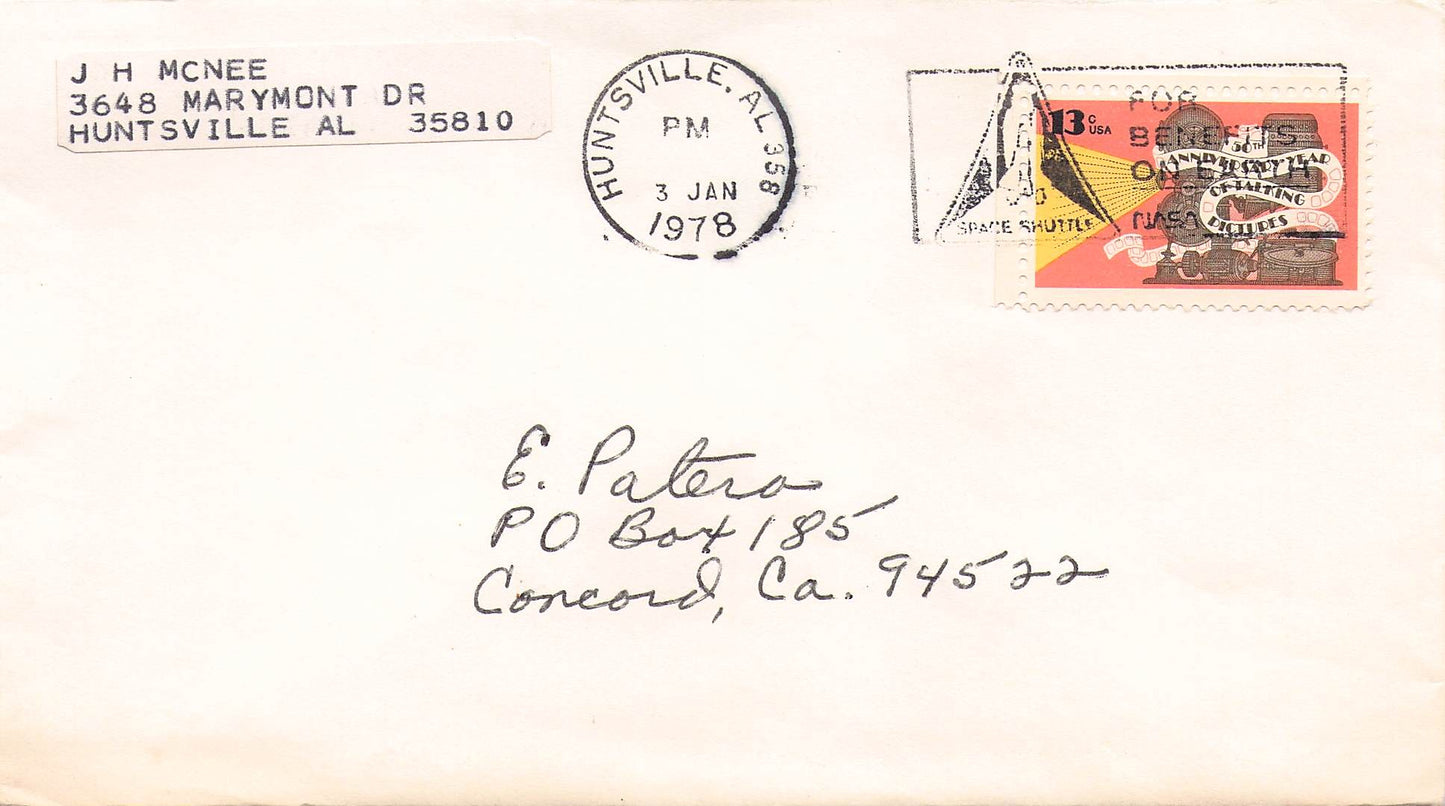 J H MCNEE
3648 MARYMONT DR
HUNTSVILLE AL 35810
HUNTSVILLE, AL 358
PM
3 JAN
1978
SPACE SHUTTLE
FOR
BENEFITS
ON EARTH
NASA
13c
USA
50TH
ANNIVERSARY YEAR
OF TALKING
PICTURES
E. Patera
PO Box 185
Concord, Ca. 94522